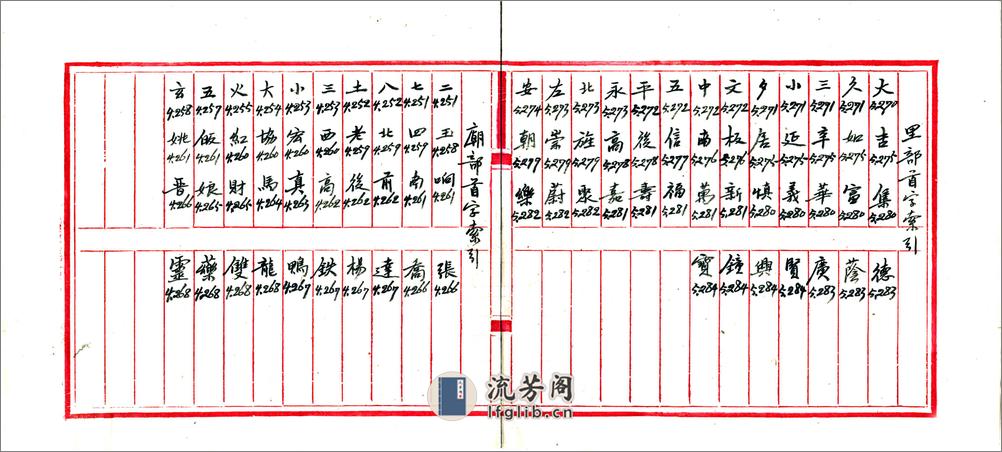 里部首字索引
大 5.270 吉 5.275 集 5.280
久 5.271 如 5.275 富 5.280
三 5.271 辛 5.275 華 5.280
小 5.271 延 5.275 義 5.280
夕 5.271 居 5.275 慎 5.280
文 5.272 板 5.276 新 5.281
中 5.272 南 5.276 萬 5.281
五 5.272 信 5.277 福 5.281
平 5.272 後 5.278 壽 5.281
永 5.273 高 5.278 嘉 5.281
北 5.273 旌 5.279 聚 5.282
左 5.273 崇 5.279 蔚 5.282
安 5.274 朝 5.279 樂 5.282
德 5.283
蔭 5.283
廣 5.283
賢 5.284
興 5.284
鐘 5.284
寶 5.284
廟部首字索引
二 4.251 玉 4.258 响 4.261
七 4.251 四 4.259 南 4.261
八 4.252 北 4.259 前 4.262
土 4.252 老 4.259 後 4.262
三 4.253 西 4.260 高 4.262
小 4.253 宏 4.260 真 4.263
大 4.254 協 4.260 馬 4.264
火 4.255 紅 4.260 財 4.265
五 4.257 飯 4.261 娘 4.265
玄 4.258 姚 4.261 晋 4.266
張 4.266
喬 4.266
達 4.267
楊 4.267
鉄 4.267
鴨 4.267
龍 4.268
雙 4.268
藥 4.268
靈 4.268
流芳阁
lfglib.cn